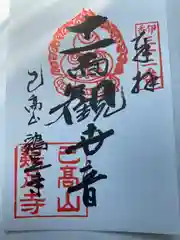 奉拝
十一面観世音
己高山
鶏足寺
己高山
鶏足寺